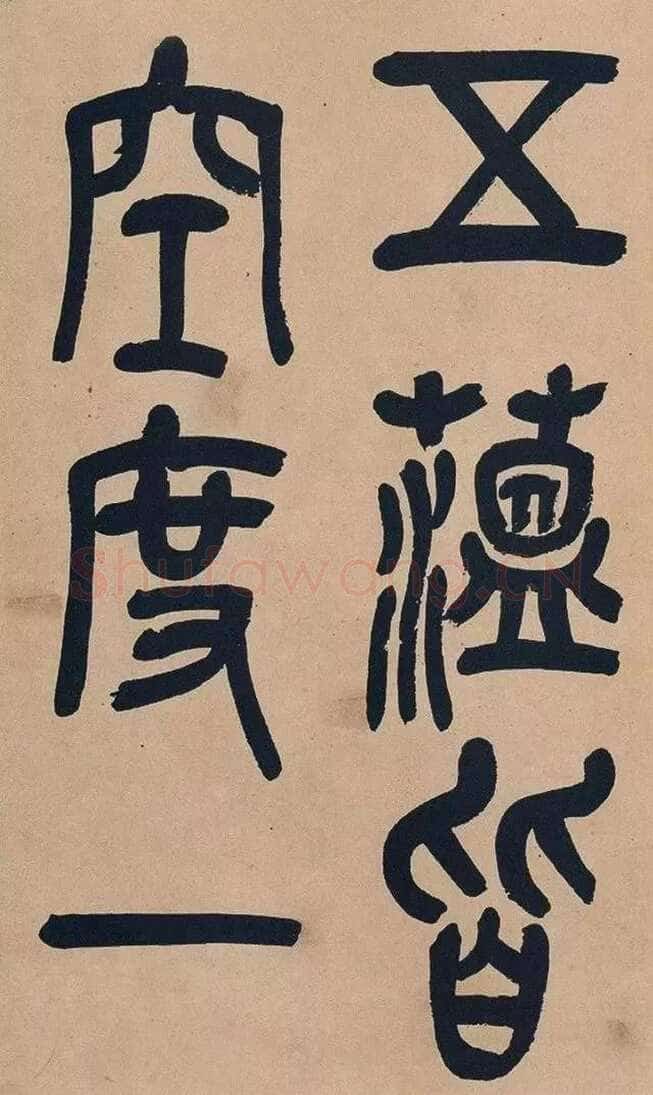 五薀皆
空度一
Shufawang.CN